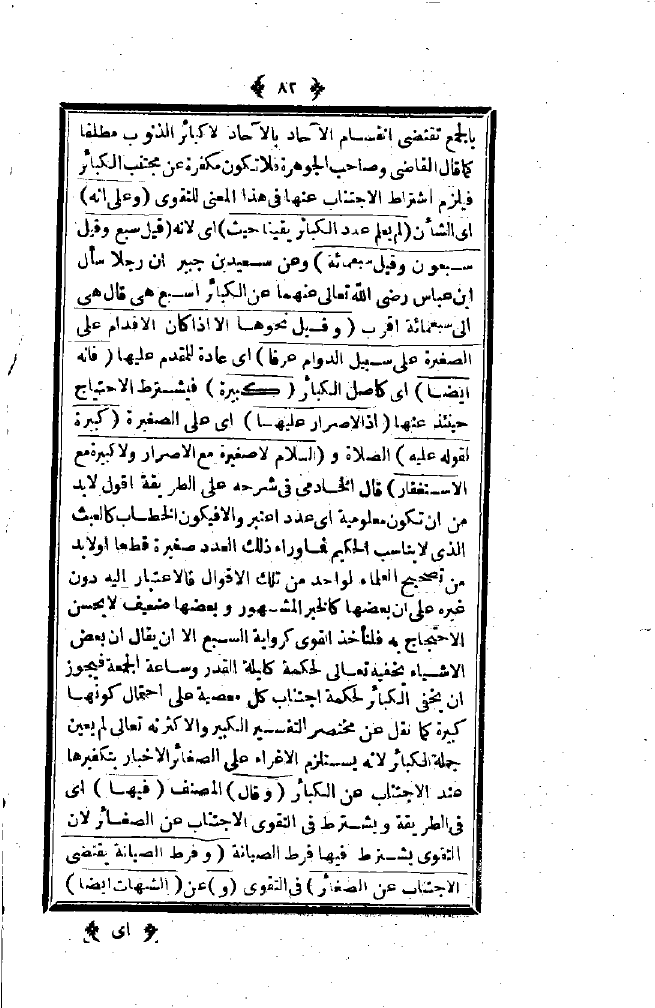 ﴿ ٨٢ ﴾
بالجمع تقتضى انقسام الآحاد بالآحاد لا كبائر الذنوب مطلقا
كما قال القاضى وصاحب الجوهرة فلا تكون مكفرة عن مجتنب الكبائر
فيلزم اشتراط الاجتناب عنها فى هذا المعنى للتقوى (وعلى انه)
اى الشأن (لم يعلم عدد الكبائر يقينا حيث) اى لانه (قيل سبع وقيل
سبعون وقيل سبعمائة) وعن سعيد بن جبير ان رجلا سأل
ابن عباس رضى الله تعالى عنهما عن الكبائر اسبع هى قال هى
الى سبعمائة اقرب (وقيل نحوها الا اذا كان الاقدام على
الصغيرة على سبيل الدوام عرفا) اى عادة للمقدم عليها (فانه
ايضا) اى كاصل الكبائر (كبيرة) فيشترط الاحتياج
حينئذ عنها (اذ الاصرار عليها) اى على الصغيرة (كبيرة
لقوله عليه) الصلاة و (السلام لا صغيرة مع الاصرار ولا كبيرة مع
الاستغفار) قال الخادمى فى شرحه على الطريقة اقول لابد
من ان تكون معلومية اى عدد اعتبر والا فيكون الخطاب كالعبث
الذى لا يناسب الحكيم فماوراء ذلك العدد صغيرة قطعا اولابد
من تصحيح العلماء لواحد من تلك الاقوال فالاعتبار اليه دون
غيره على ان بعضها كالخبر المشهور وبعضها ضعيف لا يحسن
الاحتجاج به فلنأخذ القوى كرواية السبع الا ان يقال ان بعض
الاشياء يخفيه تعالى لحكمة كليلة القدر وساعة الجمعة فيجوز
ان يخفى الكبائر لحكمة اجتناب كل معصية على احتمال كونها
كبيرة كما نقل عن مختصر التفسير الكبير والاكثر انه تعالى لم يعين
جملة الكبائر لانه يستلزم الاغراء على الصغائر الاخبار بتكفيرها
عند الاجتناب عن الكبائر (وقال) المصنف (فيها) اى
فى الطريقة ويشترط فى التقوى الاجتناب عن الصغائر لان
التقوى يشترط فيها فرط الصيانة (وفرط الصيانة يقتضى
الاجتناب عن الصغائر) فى التقوى (و) عن (الشبهات ايضا)
﴿ اى ﴾